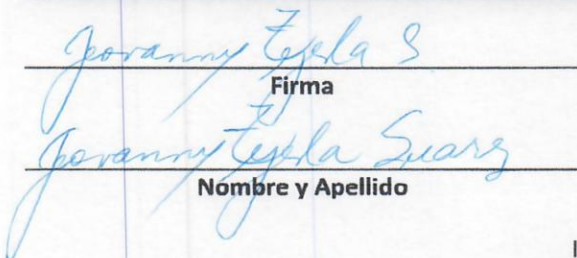 Jovanny Tejeda S
Firma
Jovanny Tejeda Suarez
Nombre y Apellido